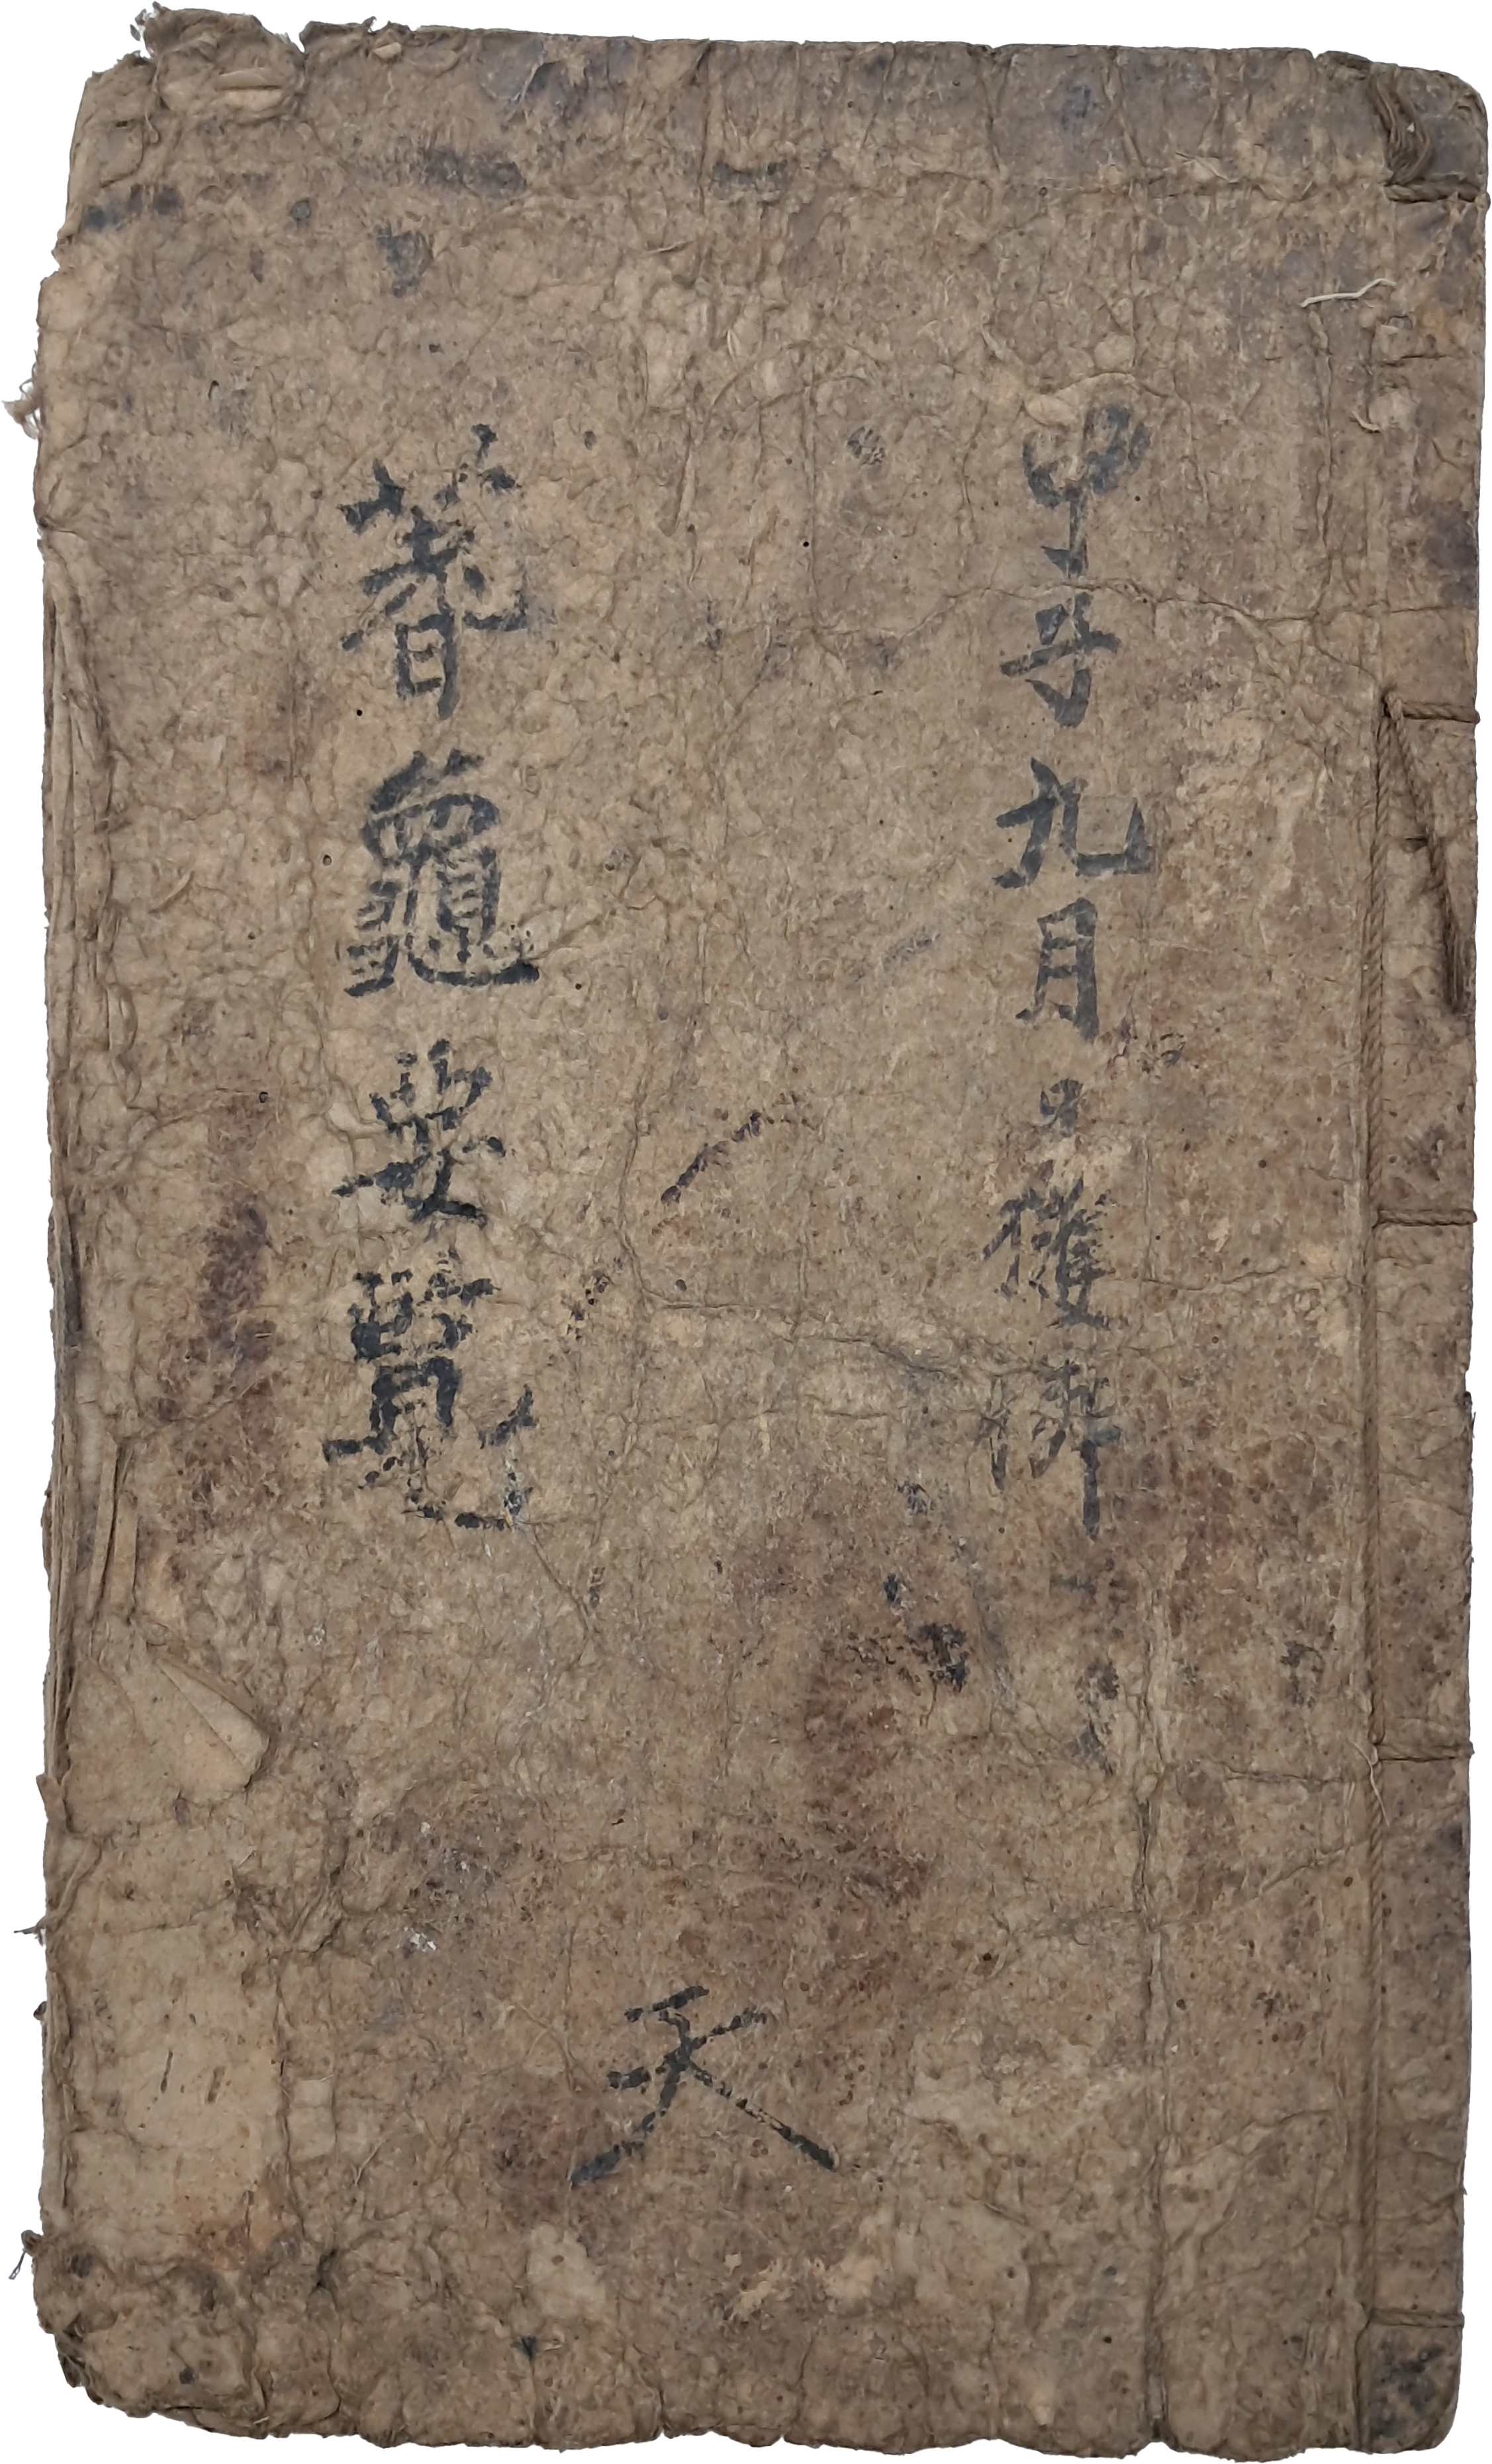 甲子九月日
蓍龜要覽
天